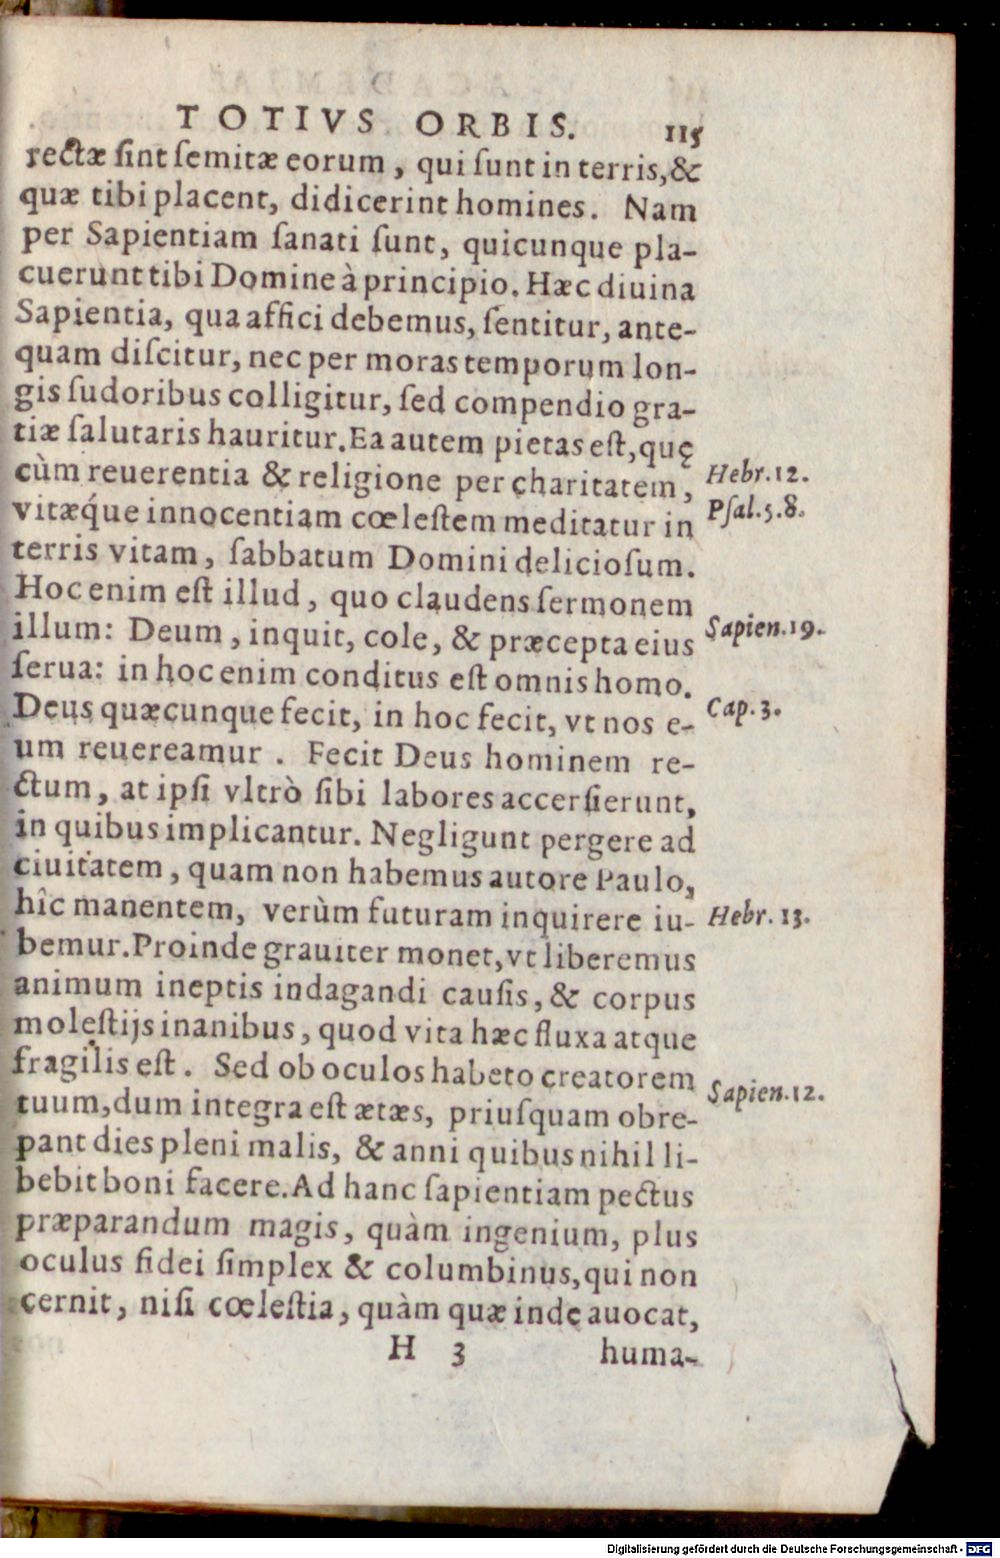 TOTIVS ORBIS. 115
rectæ ſint ſemitæ eorum, qui ſunt in terris, &
quæ tibi placent, didicerint homines. Nam
per Sapientiam ſanati ſunt, quicunque pla-
cuerunt tibi Domine à principio. Hæc diuina
Sapientia, qua affici debemus, ſentitur, ante-
quam diſcitur, nec per moras temporum lon-
gis ſudoribus colligitur, ſed compendio gra-
tiæ ſalutaris hauritur. Ea autem pietas eſt, quę
cùm reuerentia & religione per charitatem, Hebr. 12.
vitæq́ue innocentiam cœleſtem meditatur in Pſal. 5. 8.
terris vitam, ſabbatum Domini delicioſum.
Hoc enim eſt illud, quo claudens ſermonem
illum: Deum, inquit, cole, & præcepta eius Sapien. 19.
ſerua: in hoc enim conditus eſt omnis homo.
Deus quæcunque fecit, in hoc fecit, vt nos e- Cap. 3.
um reuereamur. Fecit Deus hominem re-
ctum, at ipſi vltrò ſibi labores accerſierunt,
in quibus implicantur. Negligunt pergere ad
ciuitatem, quam non habemus autore Paulo,
hîc manentem, verùm futuram inquirere iu- Hebr. 13.
bemur. Proinde grauiter monet, vt liberemus
animum ineptis indagandi cauſis, & corpus
moleſtijs inanibus, quod vita hæc fluxa atque
fragilis eſt. Sed ob oculos habeto creatorem
tuum, dum integra eſt ætæs, priuſquam obre- Sapien. 12.
pant dies pleni malis, & anni quibus nihil li-
bebit boni facere. Ad hanc ſapientiam pectus
præparandum magis, quàm ingenium, plus
oculus fidei ſimplex & columbinus, qui non
cernit, niſi cœleſtia, quàm quæ inde auocat,
H 3 huma-
Digitalisierung gefördert durch die Deutsche Forschungsgemeinschaft - DFG